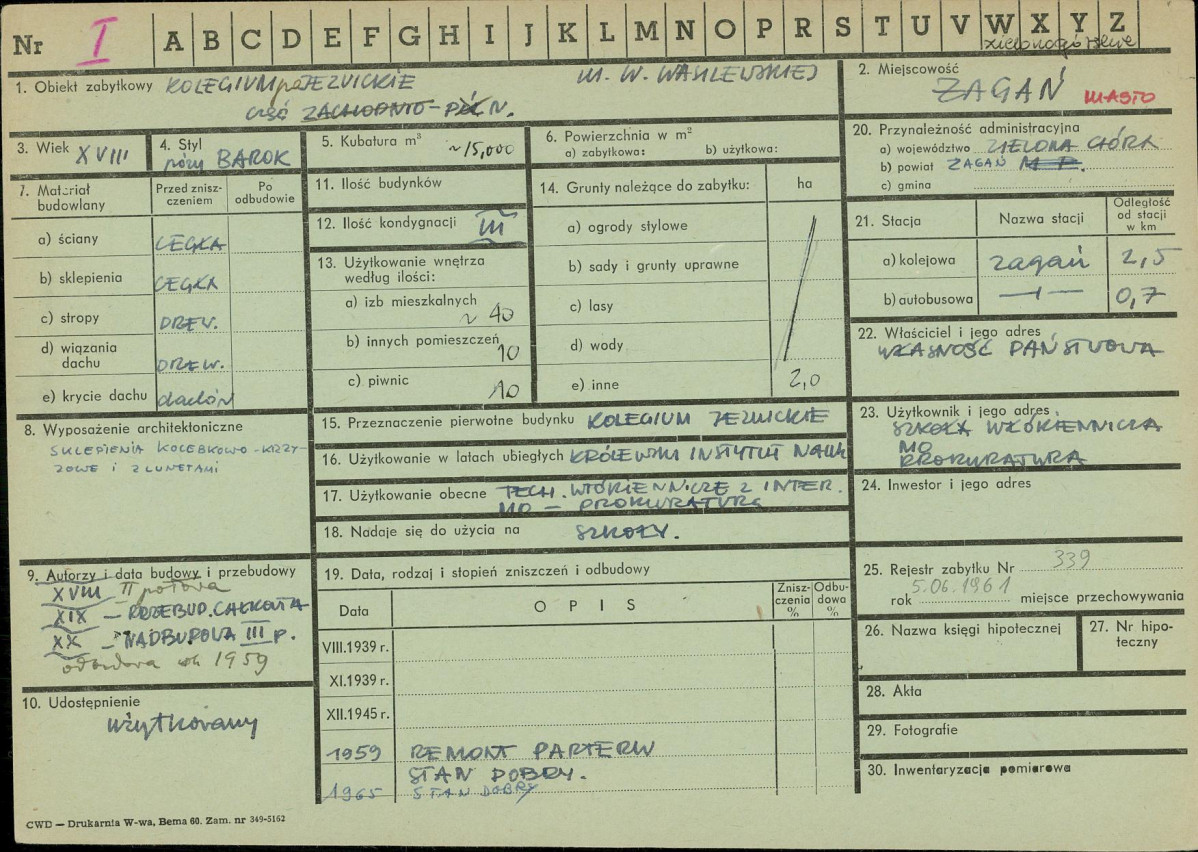 Nr I A B C D E F G H I J K L M N O P R S T U V W X Y Z
zielonogórskie
1. Obiekt zabytkowy KOLEGIUM poJEZUICKIE ul. W. WASILEWSKIEJ
część ZACHODNIO-PŁN.
2. Miejscowość
ŻAGAŃ MIASTO
3. Wiek XVIII
4. Styl
późny BAROK
5. Kubatura m³
~15,000
6. Powierzchnia w m²
a) zabytkowa: b) użytkowa:
20. Przynależność administracyjna
a) województwo ZIELONA GÓRA
b) powiat ŻAGAŃ M P.
c) gmina
7. Materiał budowlany
Przed zniszczeniem
Po odbudowie
a) ściany CEGŁA
b) sklepienia CEGŁA
c) stropy DREW.
d) wiązania dachu DREW.
e) krycie dachu dachów
11. Ilość budynków
12. Ilość kondygnacji III
13. Użytkowanie wnętrza
według ilości:
a) izb mieszkalnych
~ 40
b) innych pomieszczeń
10
c) piwnic 10
14. Grunty należące do zabytku: ha
a) ogrody stylowe
b) sady i grunty uprawne
c) lasy
d) wody
e) inne 2,0
21. Stacja
Nazwa stacji
Odległość od stacji w km
a) kolejowa żagań 2,5
b) autobusowa —ı— 0,7
22. Właściciel i jego adres
WŁASNOŚĆ PAŃSTWOWA
8. Wyposażenie architektoniczne
SKLEPIENIA KOLEBKOWO-KRZY-
ŻOWE I Z LUNETAMI
15. Przeznaczenie pierwotne budynku KOLEGIUM JEZUICKIE
16. Użytkowanie w latach ubiegłych KRÓLEWSKI INSTYTUT NAUK
17. Użytkowanie obecne TECH. WŁÓKIENNICZE Z INTER.
MO — PROKURATURA
18. Nadaje się do użycia na SZKOŁY.
23. Użytkownik i jego adres
SZKOŁA WŁÓKIENNICZA
MO
PROKURATURA
24. Inwestor i jego adres
9. Autorzy i data budowy i przebudowy
XVIII II połowa
XIX — ROZBUD. CAŁKOWITA
XX — NADBUDOWA III p.
odbudowa rok 1959
10. Udostępnienie
użytkowany
19. Data, rodzaj i stopień zniszczeń i odbudowy
Data
O P I S
Zniszczenia %
Odbudowa %
VIII.1939 r.
XI.1939 r.
XII.1945 r.
1959 REMONT PARTERU
STAN DOBRY.
1965 STAN DOBRY
25. Rejestr zabytku Nr 339
rok 5.06.1961 miejsce przechowywania
26. Nazwa księgi hipotecznej
27. Nr hipoteczny
28. Akta
29. Fotografie
30. Inwentaryzacja pomiarowa
CWD — Drukarnia W-wa, Bema 60. Zam. nr 349-5162